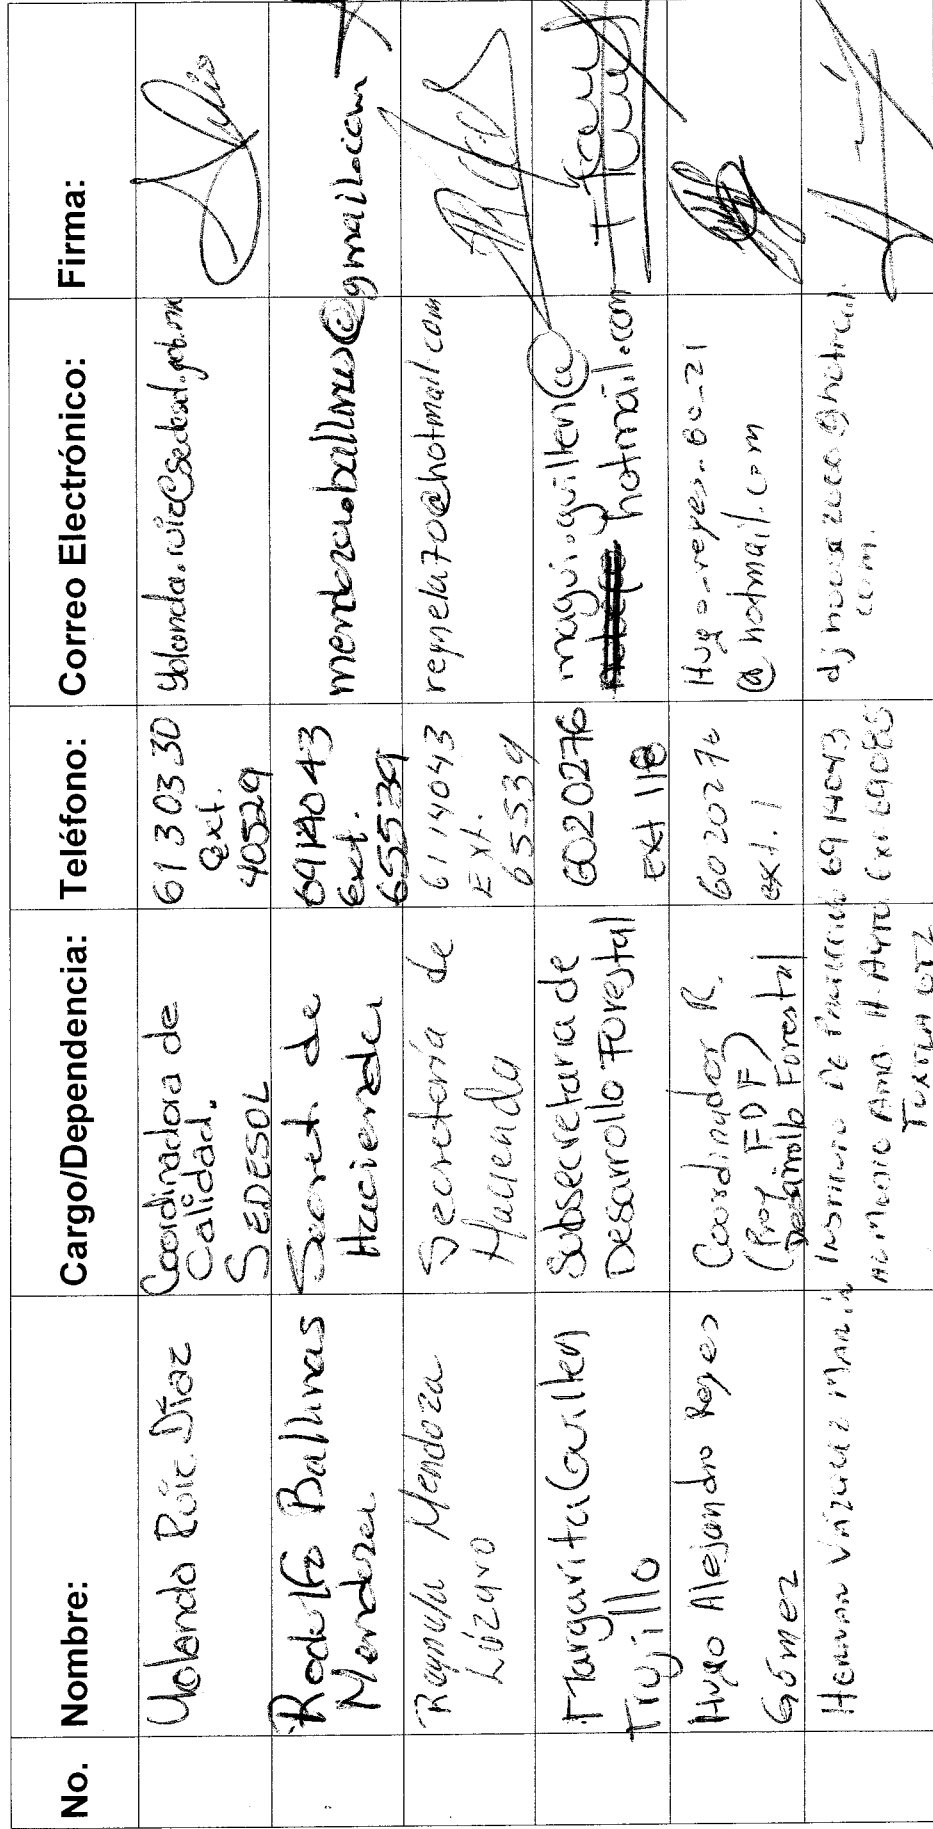 No. Nombre: Cargo/Dependencia: Teléfono: Correo Electrónico: Firma:
Yolanda Ruiz Díaz
Coordinadora de
Calidad.
SEDESOL
61 3 03 30
ext.
40529
Rodolfo Ballinas
Mendoza
Secret. de
Hacienda
6914043
ext.
65539
mendozaballinas@gmail.com
Reynela Mendoza
Lázaro
Secretaría de
Hacienda
6114043
Ext.
65539
reynela70@hotmail.com
Margarita Guillen
Trujillo
Subsecretaria de
Desarrollo Forestal
6020276
ext 118
magui.guillen@
hotmail.com
Hugo Alejandro Reyes
Gómez
Coordinador R.
(Prof FDF)
Desarrollo Forestal
6020276
ext. 1
@hotmail.com
Hernan Vázquez
Instituto de
6914043
Ext 69085
Tuxtla Gtz